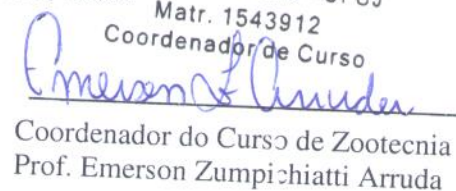 Matr. 1543912
Coordenador de Curso
Coordenador do Curso de Zootecnia
Prof. Emerson Zumpichiatti Arruda